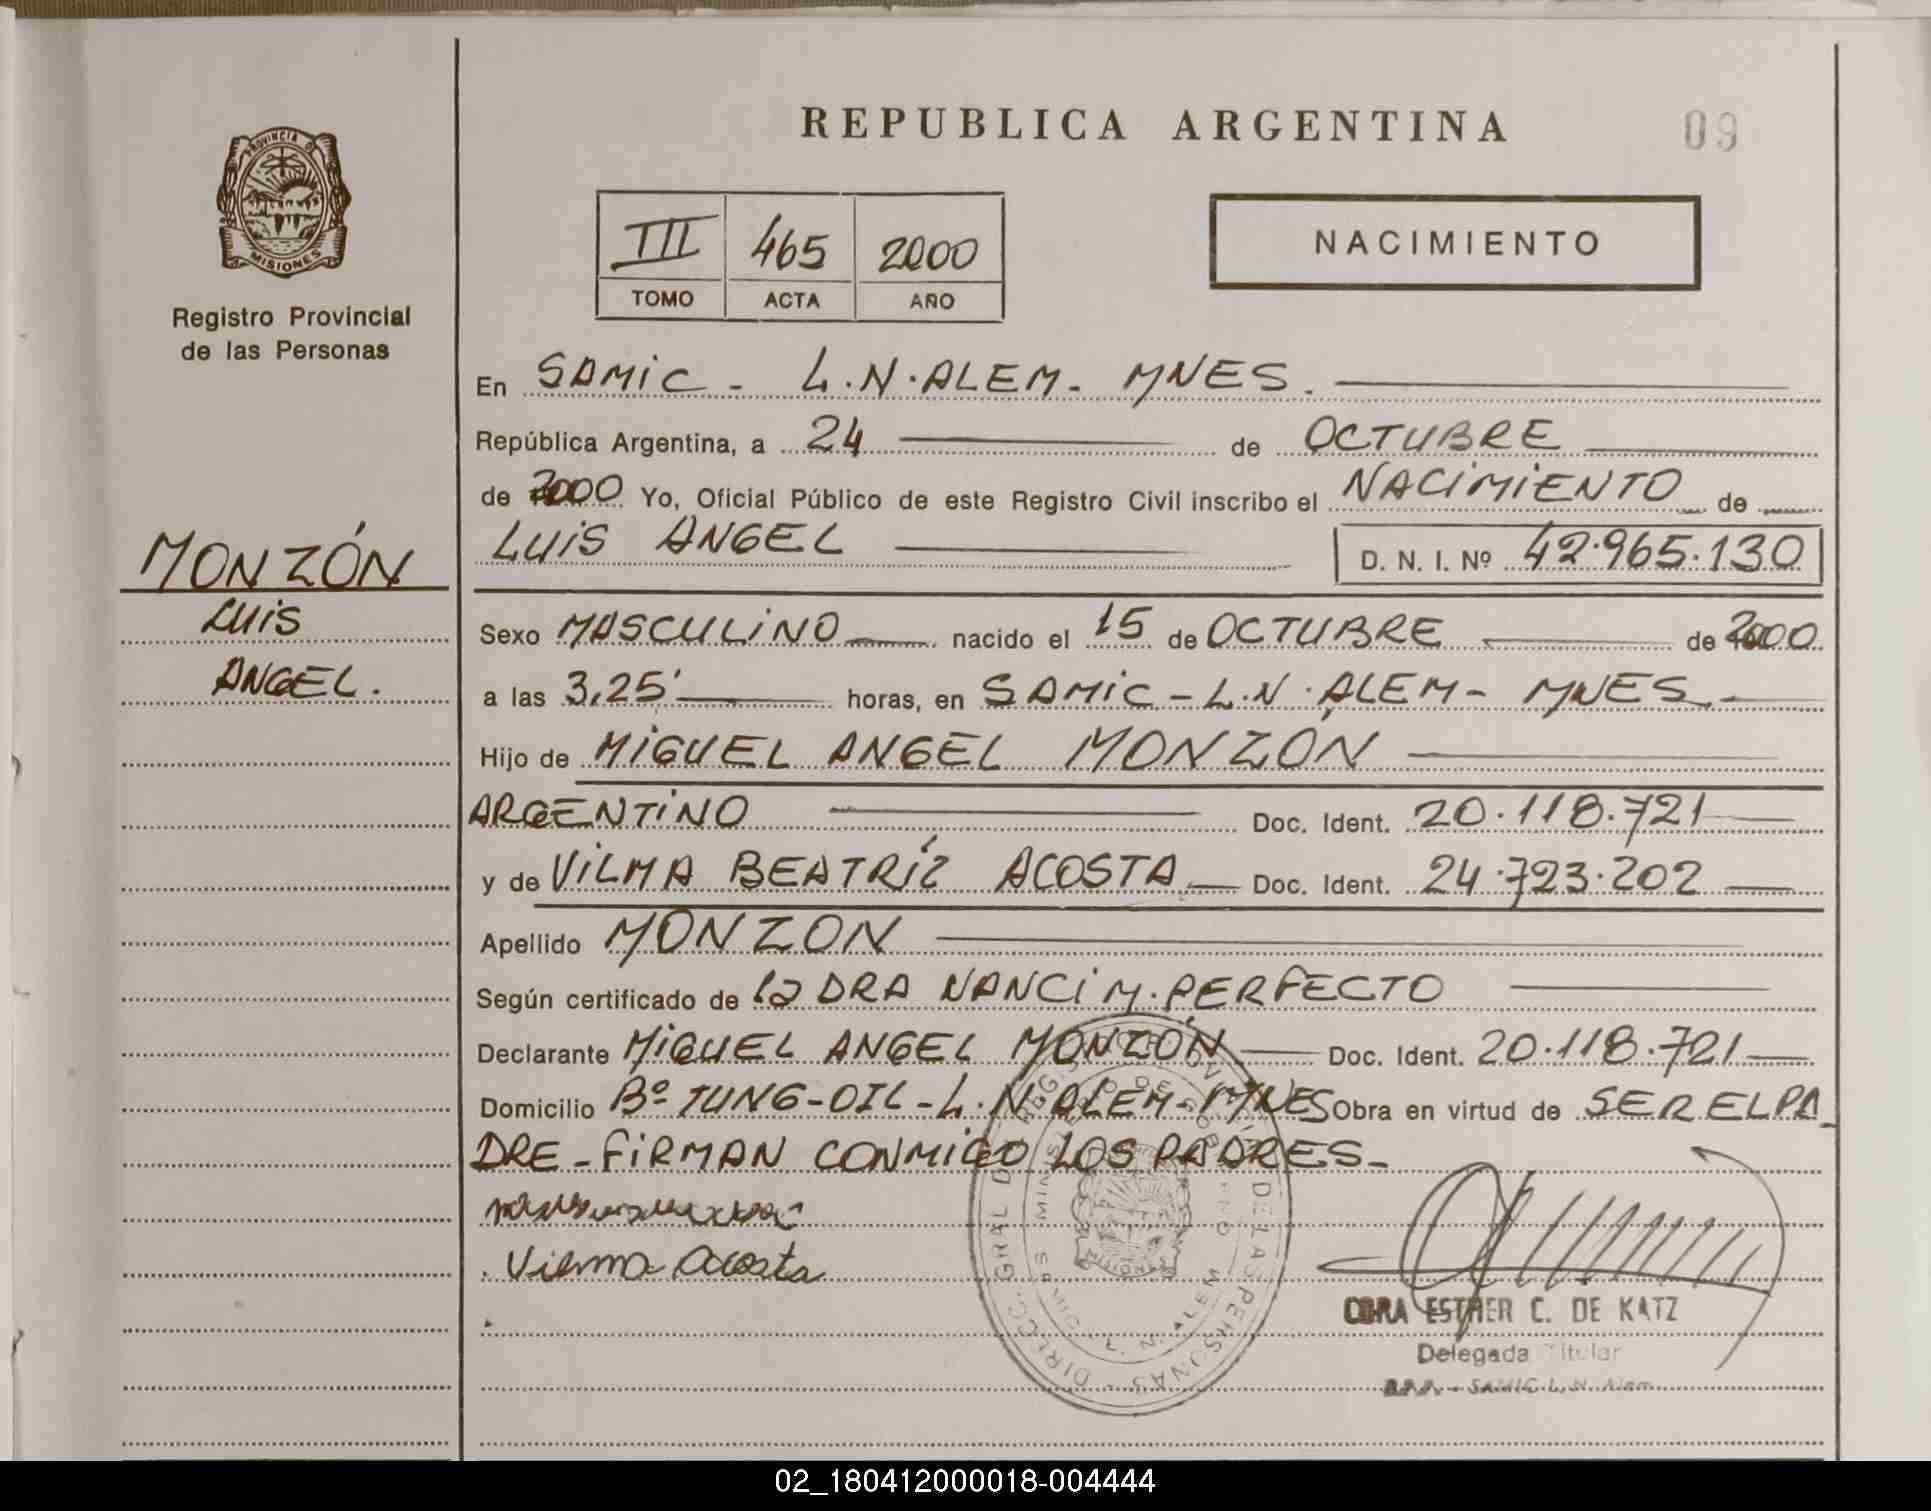 REPUBLICA ARGENTINA
09
PROVINCIA DE
MISIONES
Registro Provincial
de las Personas
III 465 2000
TOMO ACTA AÑO
NACIMIENTO
En SAMIC - L.N.ALEM - MNES.
República Argentina, a 24 de OCTUBRE
de 2000 Yo, Oficial Público de este Registro Civil inscribo el NACIMIENTO de
LUIS ANGEL D. N. I. Nº 42.965.130
MONZÓN
LUIS
ANGEL.
Sexo MASCULINO nacido el 15 de OCTUBRE de 2000
a las 3,25' horas, en SAMIC - L.N.ALEM - MNES -
Hijo de MIGUEL ANGEL MONZÓN
ARGENTINO Doc. Ident. 20.118.721
y de VILMA BEATRÍZ ACOSTA Doc. Ident. 24.723.202
Apellido MONZON
Según certificado de la DRA NANCI M. PERFECTO
Declarante MIGUEL ANGEL MONZÓN Doc. Ident. 20.118.721
Domicilio Bº TUNG-OIL - L.N ALEM - MNES Obra en virtud de SER EL PA
DRE - FIRMAN CONMIGO LOS PADRES -
Vilma Acosta
DIRECC. GRAL DE LAS PERSONAS
L. N. ALEM
CORA ESTHER C. DE KATZ
Delegada Titular
R.P.P. - SAMIC L. N. Alem
02_180412000018-004444